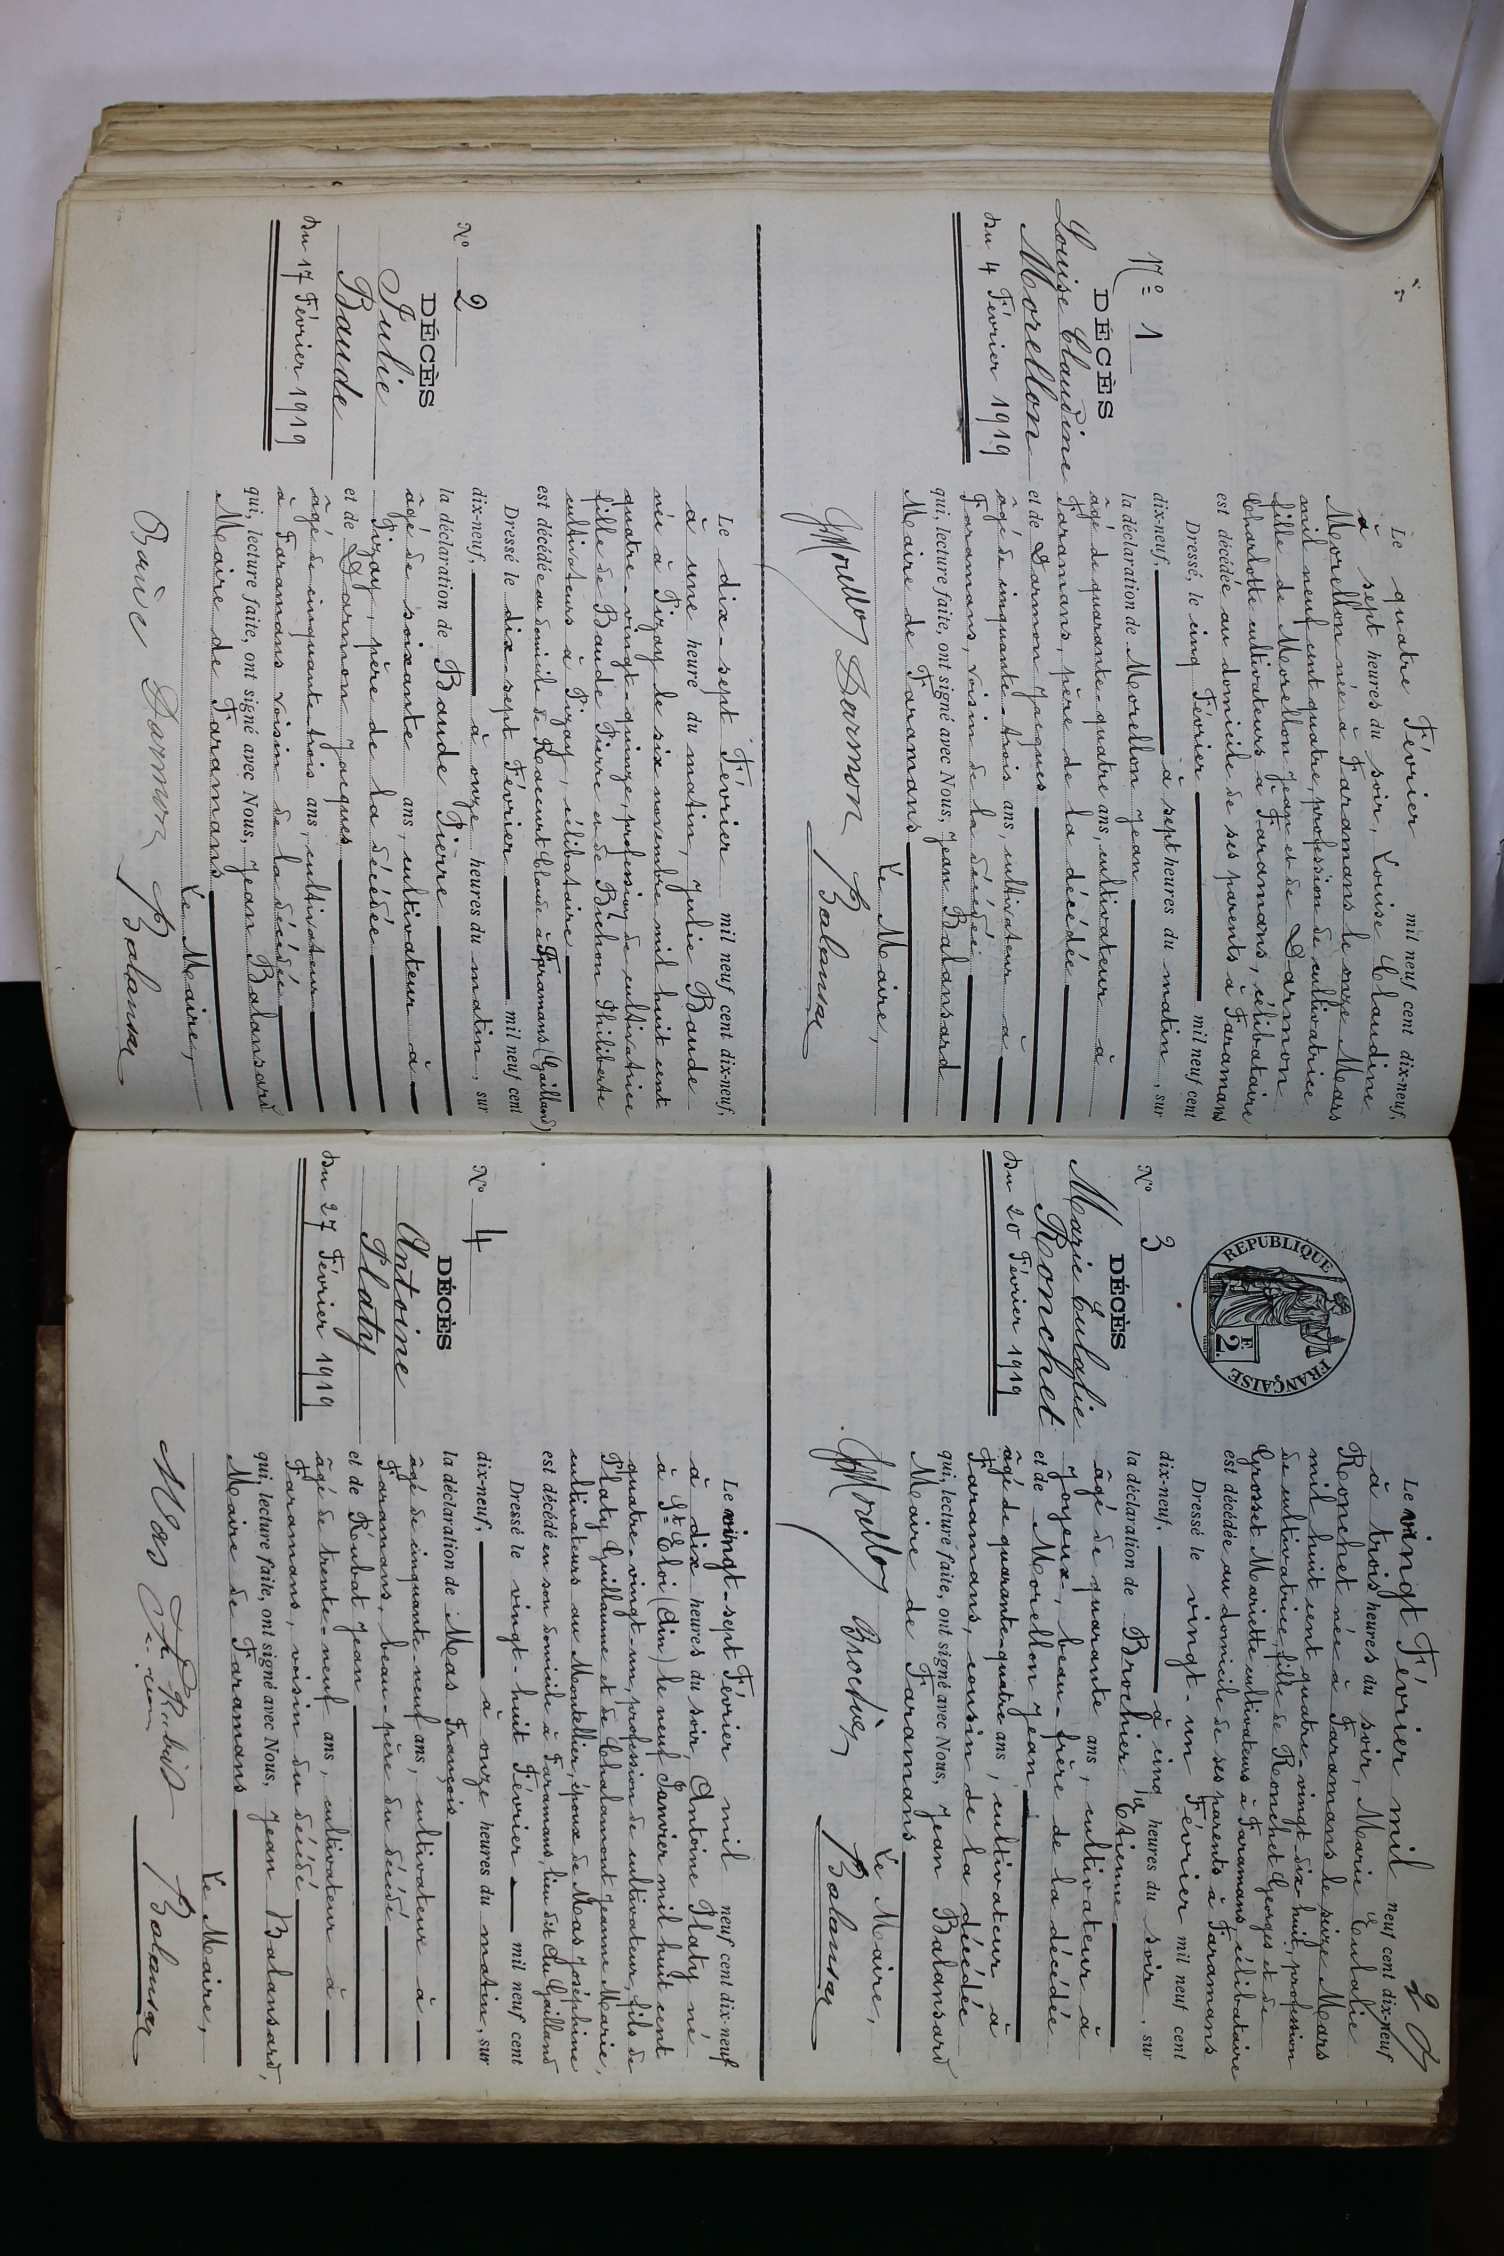 N° 1
DÉCÈS
Louise Claudine
Morellon
du 4 Février 1919
Le quatre Février mil neuf cent dix-neuf,
à sept heures du soir, Louise Claudine
Morellon née à Faramans le onze Mars
mil neuf cent quatre, profession de cultivatrice
fille de Morellon Jean et de Darmon
Charlotte cultivateurs à Faramans, célibataire
est décédée au domicile de ses parents à Faramans
Dressé, le cinq Février mil neuf cent
dix-neuf, à sept heures du matin, sur
la déclaration de Morellon Jean
âgé de quarante-quatre ans, cultivateur à
Faramans, père de la décédée
et de Darmon Jacques
âgé de cinquante-trois ans, cultivateur à
Faramans, voisin de la décédée
qui, lecture faite, ont signé avec Nous, Jean Balansard
Maire de Faramans
Le Maire,
JMorellon Darmon Balansar
N° 2
DÉCÈS
Julie
Baude
du 17 Février 1919
Le dix-sept Février mil neuf cent dix-neuf,
à une heure du matin, Julie Baude
née à Pizay le six novembre mil huit cent
quatre-vingt-quinze, profession de cultivatrice
fille de Baude Pierre et de Bichon Philiberte
cultivateurs à Pizay, célibataire
est décédée au domicile de Raccurt Claude à Faramans (Gailland)
Dressé le dix-sept Février mil neuf cent
dix-neuf, à onze heures du matin, sur
la déclaration de Baude Pierre
âgé de soixante ans, cultivateur à
Pizay, père de la décédée
et de Darmon Jacques
âgé de cinquante-trois ans, cultivateur
à Faramans voisin de la décédée
qui, lecture faite, ont signé avec Nous, Jean Balansard
Maire de Faramans
Le Maire,
Darmon Balansar
2
RÉPUBLIQUE FRANÇAISE
2 F.
N° 3
DÉCÈS
Marie Eulalie
Ronchet
du 20 Février 1919
Le vingt Février mil neuf cent dix-neuf
à trois heures du soir, Marie Eulalie
Ronchet née à Faramans le seize Mars
mil huit cent quatre-vingt-dix-huit, profession
de cultivatrice, fille de Ronchet Georges et de
Grosset Mariette cultivateurs à Faramans, célibataire
est décédée au domicile de ses parents à Faramans
Dressé le vingt-un Février mil neuf cent
dix-neuf, à cinq heures du soir, sur
la déclaration de Brochier Etienne
âgé de quarante ans, cultivateur à
Joyeux, beau-frère de la décédée
et de Morellon Jean
âgé de quarante-quatre ans, cultivateur à
Faramans, cousin de la décédée
qui, lecture faite, ont signé avec Nous, Jean Balansard
Maire de Faramans
Le Maire,
JMorellon Brochier Balansar
N° 4
DÉCÈS
Antoine
Platy
du 27 Février 1919
Le vingt-sept Février mil neuf cent dix-neuf
à dix heures du soir, Antoine Platy né
à St Eloi (Ain) le neuf Janvier mil huit cent
quatre-vingt-un, profession de cultivateur, fils de
Platy Guillaume et de Chalamont Jeanne Marie,
cultivateurs au Montellier, époux de Mas Joséphine
est décédé en son domicile à Faramans, lieu dit du Gailland
Dressé le vingt-huit Février mil neuf cent
dix-neuf, à onze heures du matin, sur
la déclaration de Mas François
âgé de cinquante-neuf ans, cultivateur à
Faramans, beau-père du décédé
et de Réubat Jean
âgé de trente-neuf ans, cultivateur à
Faramans, voisin du décédé
qui, lecture faite, ont signé avec Nous, Jean Balansard,
Maire de Faramans
Le Maire,
Mas Balansar